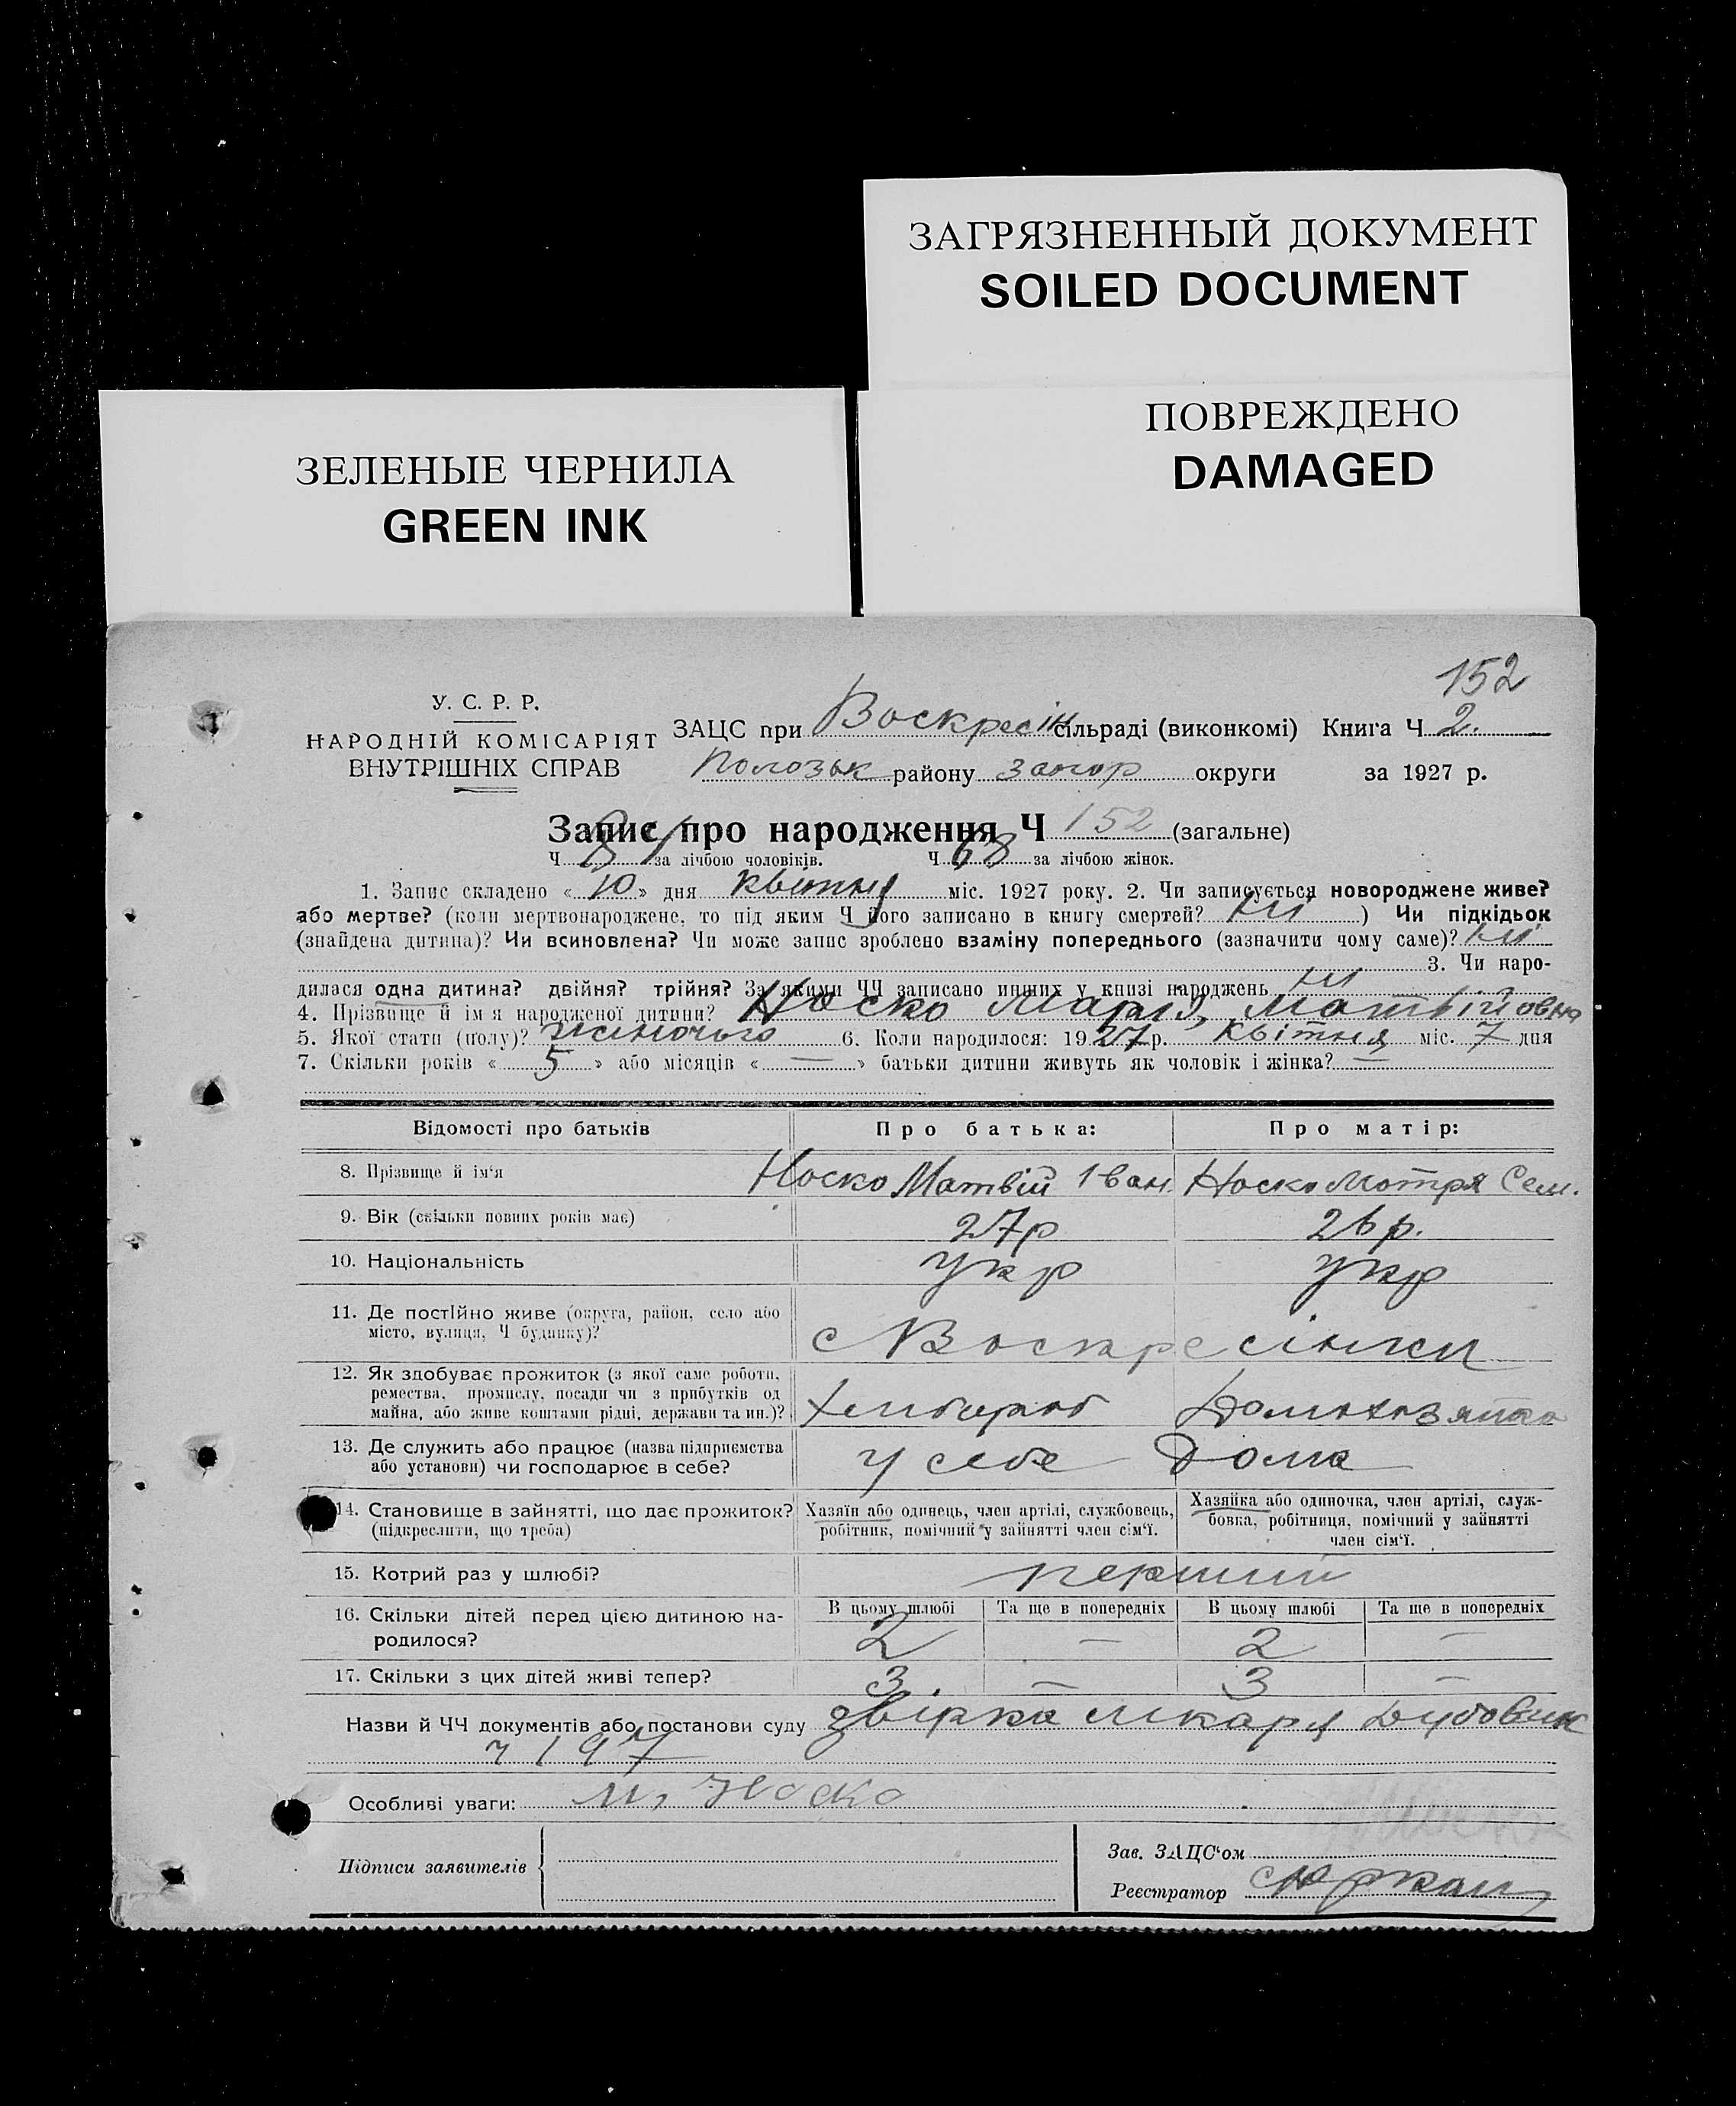 ЗАГРЯЗНЕННЫЙ ДОКУМЕНТ
SOILED DOCUMENT
ПОВРЕЖДЕНО
DAMAGED
ЗЕЛЕНЫЕ ЧЕРНИЛА
GREEN INK
152
У. С. Р. Р.
НАРОДНІЙ КОМІСАРІЯТ
ВНУТРІШНІХ СПРАВ
ЗАЦС при Воскресін сільраді (виконкомі) Книга Ч 2.
Полозьк району Запор округи за 1927 р.
Запис про народження Ч 152 (загальне)
Ч 84 за лічбою чоловіків. Ч 68 за лічбою жінок.
1. Запис складено « 10 » дня квітня міс. 1927 року. 2. Чи записується новороджене живе?
або мертве? (коли мертвонароджене, то під яким Ч його записано в книгу смертей? ні ) Чи підкідьок
(знайдена дитина)? Чи всиновлена? Чи може запис зроблено взаміну попереднього (зазначити чому саме)? ні
3. Чи наро-
дилася одна дитина? двійня? трійня? За якими ЧЧ записано инших у книзі народжень ні
4. Прізвище й ім'я народженої дитини? Носко Марія, Матвійовна
5. Якої стати (полу)? жіночого 6. Коли народилося: 1927 р. квітня міс. 7 дня
7. Скільки років « 5 » або місяців « — » батьки дитини живуть як чоловік і жінка? —
Відомості про батьків Про батька: Про матір:
8. Прізвище й ім'я Носко Матвій Іван. Носко Мотря Сем.
9. Вік (скільки повних років має) 27р 26 р.
10. Національність Укр Укр
11. Де постійно живе (округа, район, село або
місто, вулиця, Ч будинку)? с Воскресінки
12. Як здобуває прожиток (з якої саме роботи,
ремества, промислу, посади чи з прибутків од
майна, або живе коштами рідні, держави та ин.)? Хлибороб Домохазяйка
13. Де служить або працює (назва підприємства
або установи) чи господарює в себе? у себе Дома
14. Становище в зайнятті, що дає прожиток?
(підкреслити, що треба)
Хазяїн або одинець, член артілі, службовець,
робітник, помічний у зайнятті член сім'ї.
Хазяйка або одиночка, член артілі, служ-
бовка, робітниця, помічний у зайнятті
член сім'ї.
15. Котрий раз у шлюбі? перший
16. Скільки дітей перед цією дитиною на-
родилося?
В цьому шлюбі Та ще в попередніх В цьому шлюбі Та ще в попередніх
2 — 2 —
17. Скільки з цих дітей живі тепер? 3 — 3 —
Назви й ЧЧ документів або постанови суду звірка лікаря Дубовик
Ч 197
Особливі уваги: М, Носко
Підписи заявителів
Зав. ЗАЦС'ом
Реєстратор